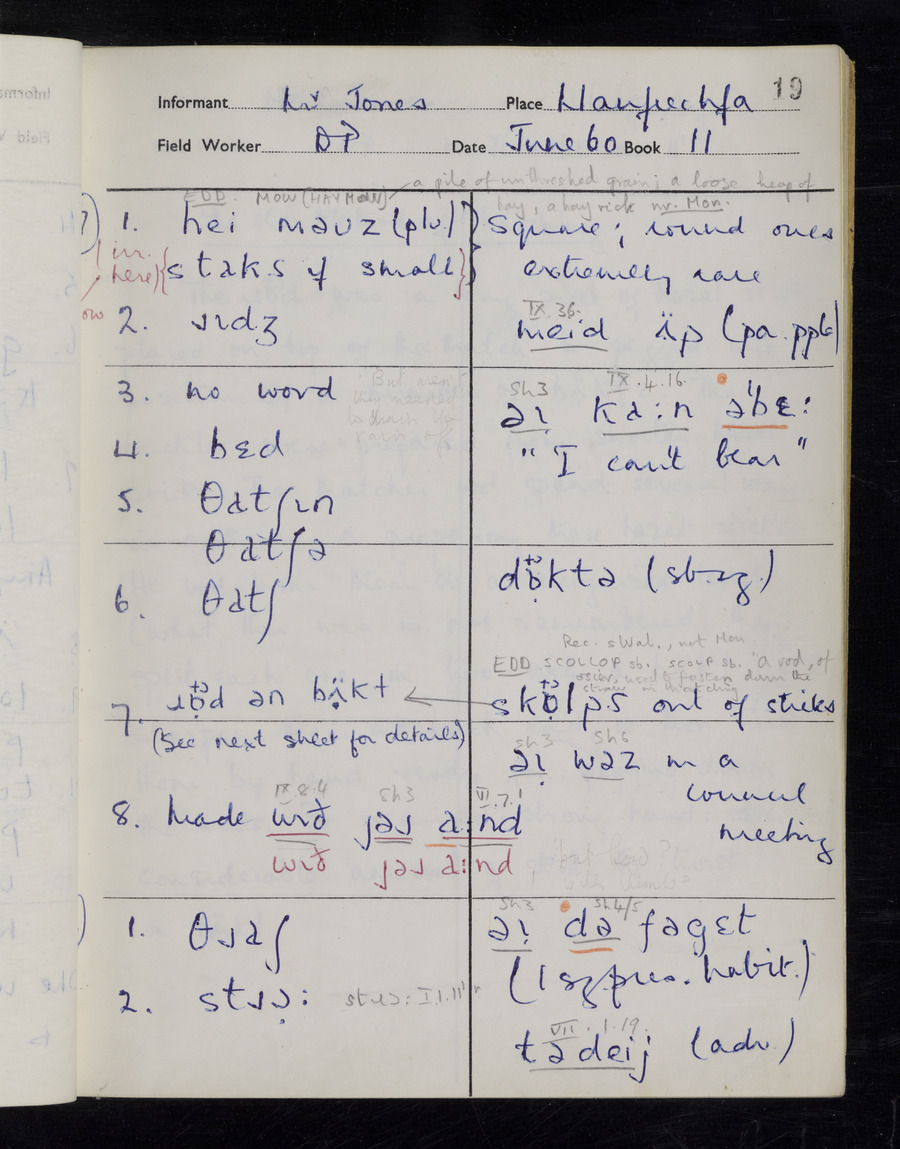 19
Informant Mr Jones Place Llanfrechfa
Field Worker DP Date June 60 Book 11
EDD. MOW (HAYMOW) a pile of unthreshed grain; a loose heap of
hay, a hay rick nr. Mon.
7) 1. hei məuz (plu.) Square; round ones
{irr. here} {staks if small} extremely rare
2. ɹɪdʒ
IX. 36.
meid ïp (pa. pple)
3. no word
But aren't
they needed
to drain the
rain off
Sh3 IX.4.16.
əɪ ka:n əˈbɛ:
4. bɛd "I can't bear"
5. θatʃɪn
θatʃə
6. θatʃ
dɒ̣ktə (sb.sg.)
Rec. sWal., not Mon
EDD SCOLLOP sb. SCOLP sb. "a rod, of
osier, used to fasten down the
straw in thatching
7. ɹɒ̣d ən bïkt skɒ̣lps out of sticks
(See next sheet for details)
Sh3 Sh6
əɪ waz in a
council
meeting
IX.2.4 Sh3 VI.7.1
8. made wɪð jəɹ a:nd
wɪð jəɹ a:nd
1. θɹaʃ
Sh3 Sh4/5
əɪ də fəgɛt
(1 sg. pres. habit.)
2. stɹɔ̣: stɹɔ: I.1.11
VII.1.19.
tədeij (adv)